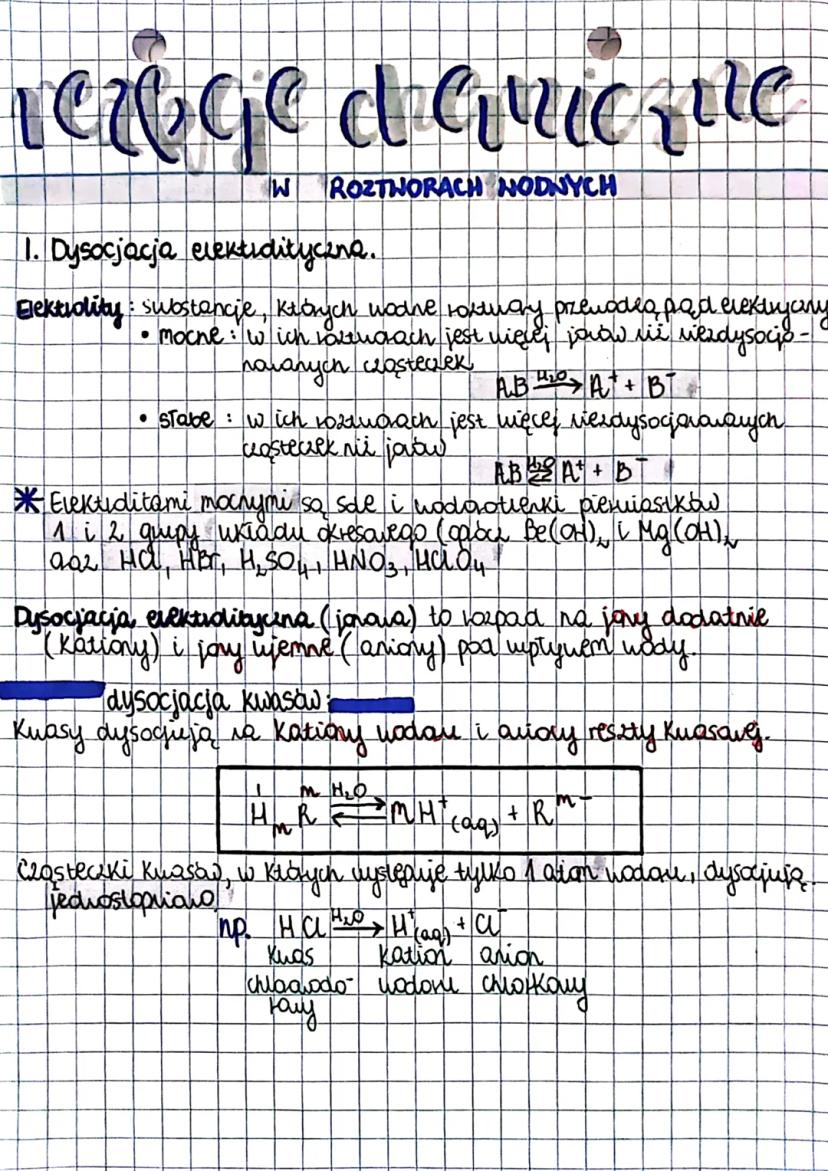 reakcje chemiczne
W ROZTWORACH WODNYCH
1. Dysocjacja elektrolityczna.
Elektrolity: substancje, których wodne roztwory przewodzą prąd elektryczny
• mocne: w ich roztworach jest więcej jonów niż niezdysocjo-
nowanych cząsteczek
AB H₂O→ A⁺ + B⁻
• słabe: w ich roztworach jest więcej niezdysocjonowanych
cząsteczek niż jonów
AB H₂O⇄ A⁺ + B⁻
* Elektrolitami mocnymi są sole i wodorotlenki pierwiastków
1 i 2 grupy układu okresowego (oprócz Be(OH)₂ i Mg(OH)₂
oraz HCl, HBr, H₂SO₄, HNO₃, HClO₄
Dysocjacja elektrolityczna (jonowa) to rozpad na jony dodatnie
(kationy) i jony ujemne (aniony) pod wpływem wody.
dysocjacja kwasów:
Kwasy dysocjują na kationy wodoru i aniony reszty kwasowej.
I m H₂O
HₘR ⇄ mH⁺(aq) + Rᵐ⁻
Cząsteczki kwasów, w których występuje tylko 1 atom wodoru, dysocjują
jednostopniowo
np. HCl H₂O→ H⁺(aq) + Cl⁻
kwas kation anion
chlorowodo- wodoru chlorkowy
rowy